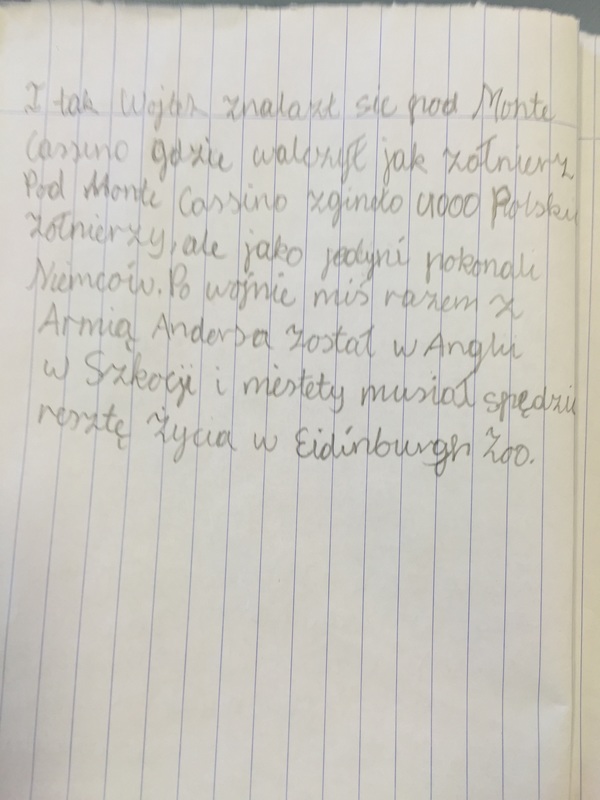 I tak Wojtek znalazł sie pod Monte
Cassino gdzie walczył jak żołnierz
Pod Monte Cassino zgineło 4000 Polski
żołnierzy, ale jako jedyni pokonali
Niemców. Po wojnie miś razem z
Armią Andersa został w Anglii
w Szkocji i niestety musiał spędzić
resztę życia w Eidinburgh Zoo.